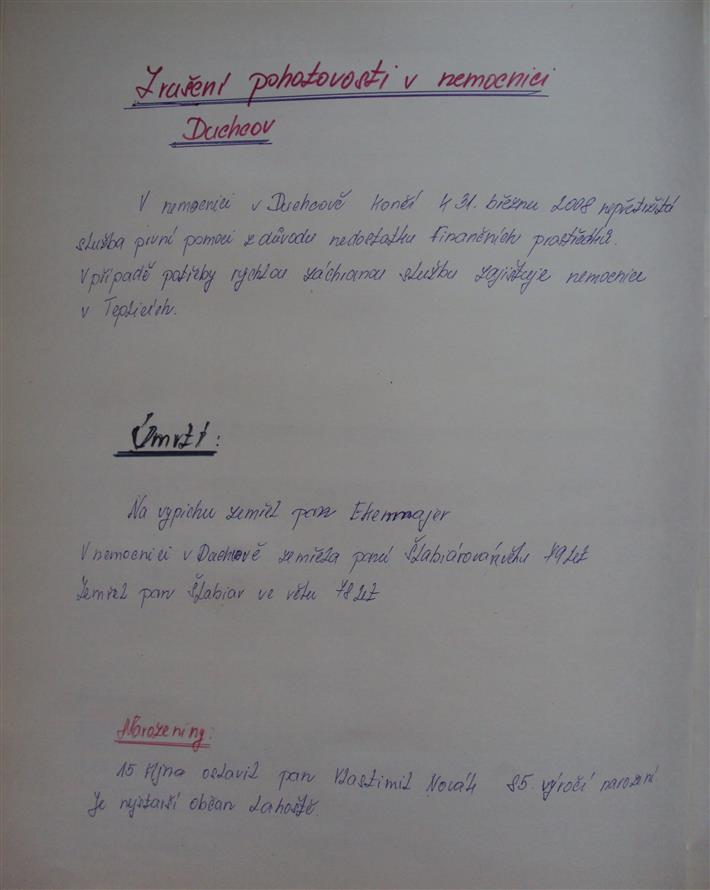 Zrušení pohotovosti v nemocnici
Duchcov
V nemocnici v Duchcově končí k 31. březnu 2008 nepřetržitá
služba první pomoci z důvodu nedostatku finančních prostředků.
V případě potřeby rychlou záchranou službu zajistuje nemocnice
v Teplicích.
Úmrtí:
Na vypichu zemřel pan
V nemocnici v Duchcově zemřela paní věku 79 let
Zemřel pan Štabiar ve věku 78 let
Narozeniny:
15. října oslavil pan Vlastimil Novák 85. výročí narození
Je nejstarší občan Lahoště.